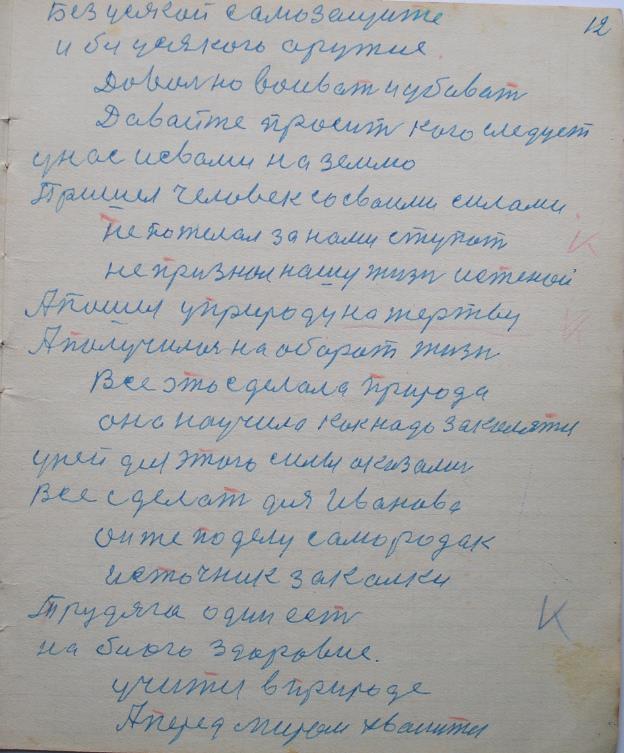 12
Без усякой самозащите
и би усякого оружия
Доволно воиват и убиват
Давайте просит кого следует
у нас и свами на землю
Пришел человек со своими силами
не пожелал за нами ступат
не признал нашу жизн истеной
А пошел у природу на жертву
А получился на оборот жизн
Все это сделала природа
она научила как надо закаляти
у ней для этого силы оказалис
Все сделат для Иванова
он же по делу самородак
источник закалки
Трудяга один ест
на благо здоровие.
учится в природе
А перед миром хвалится
К
К
К